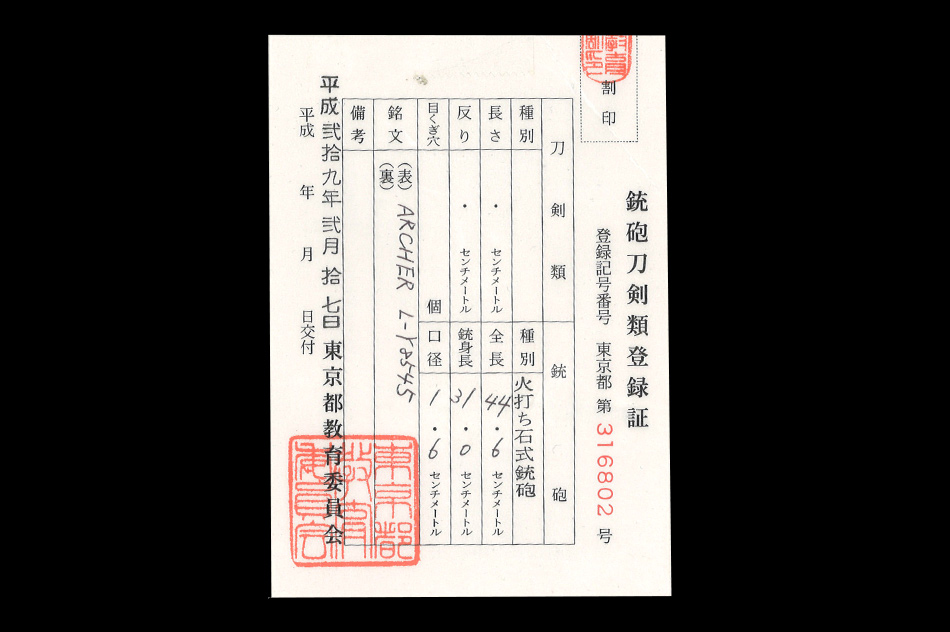 割印
銃砲刀剣類登録証
登録記号番号 東京都 第 316802 号
刀剣類 銃砲
種別 種別 火打ち石式銃砲
長さ ・ センチメートル 全長 44・6 センチメートル
反り ・ センチメートル 銃身長 31・0 センチメートル
目くぎ穴 個 口径 1・6 センチメートル
銘文 (表) ARCHER L-Y2545
(裏)
備考
平成弐拾九年弐月拾七日 東京都教育委員会
平成 年 月 日交付
東京都教育委員会